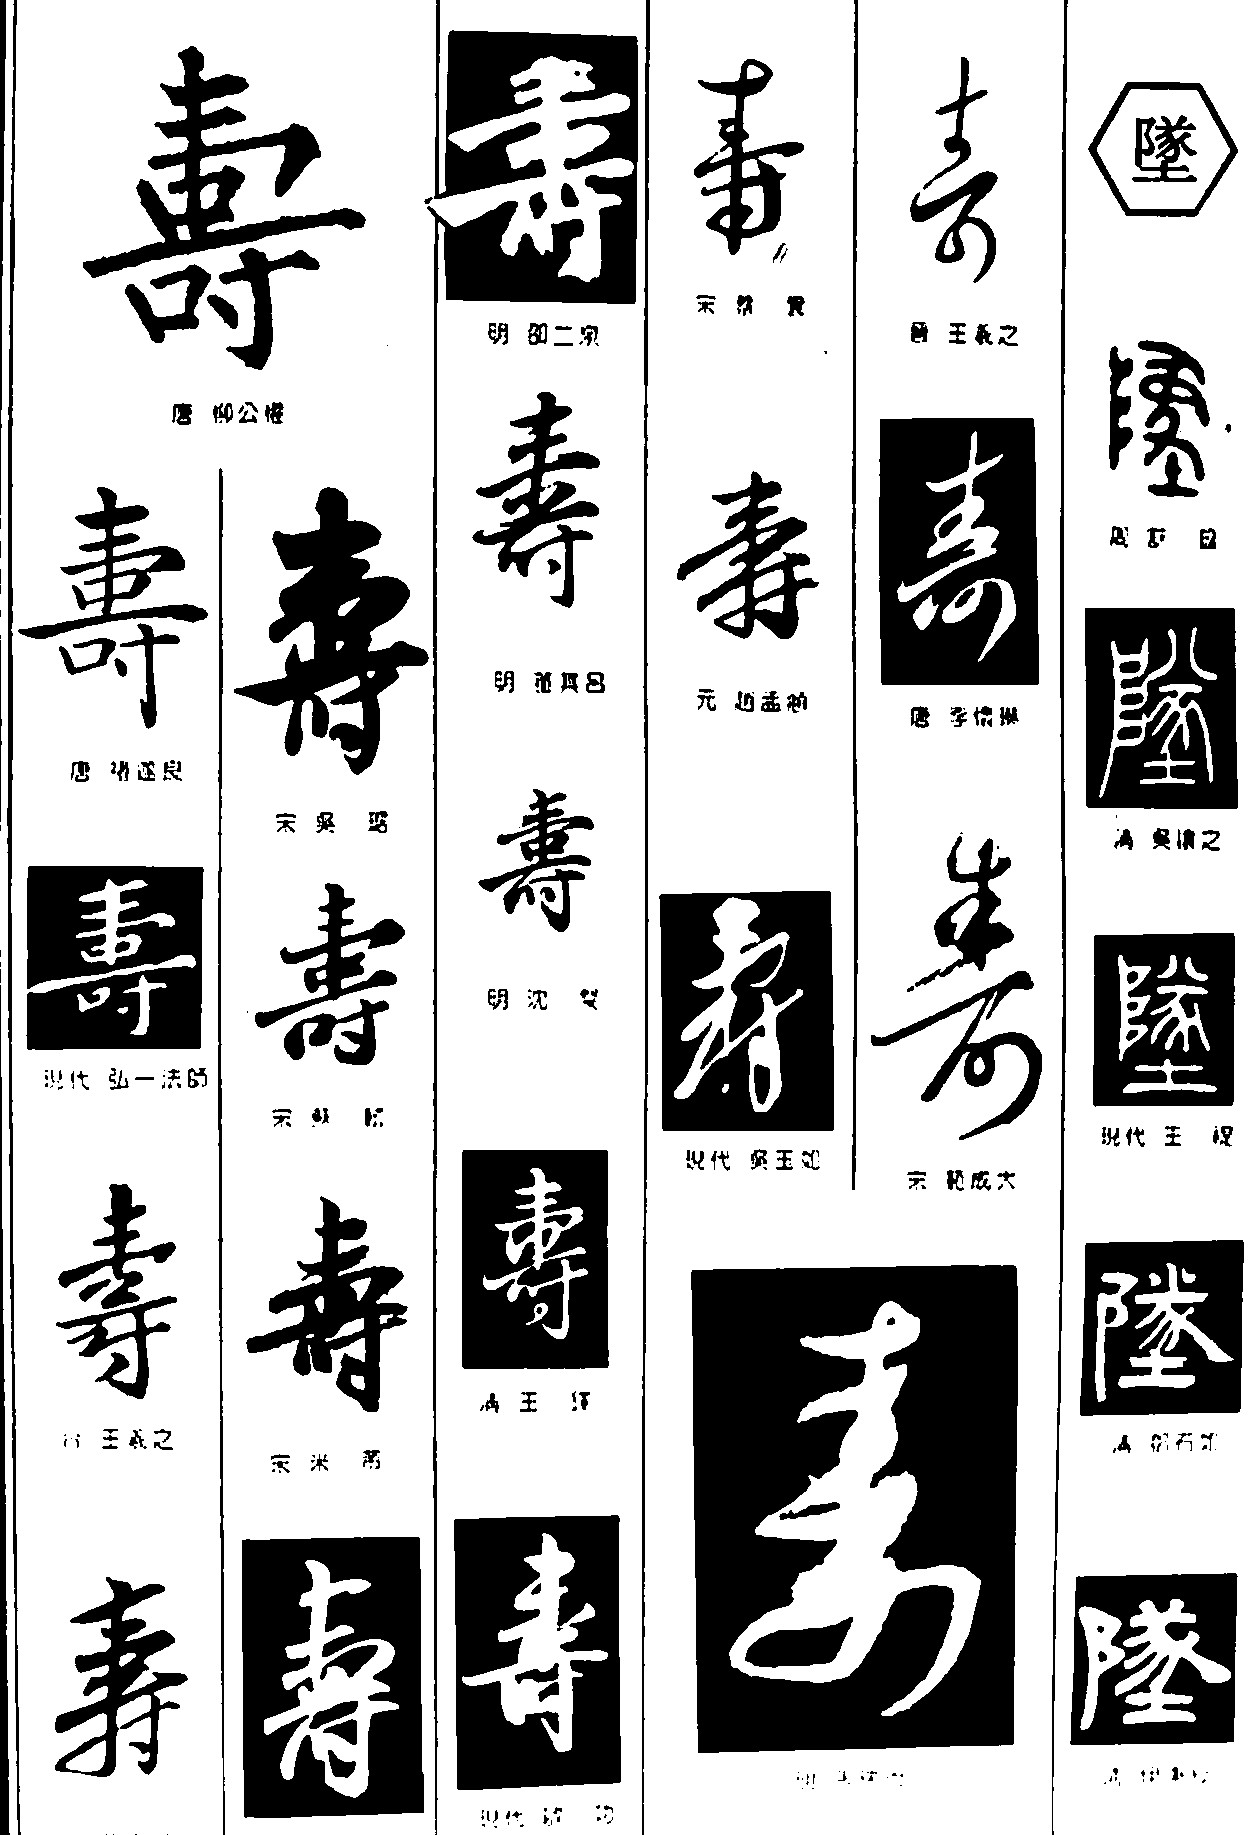 壽
唐 柳公權
壽
唐 褚遂良
壽
現代 弘一法師
壽
王羲之
壽
壽
宋 吳 琚
壽
宋 蘇 軾
壽
宋 米 芾
壽
壽
明
壽
明 張其昌
壽
明 沈 粲
壽
清 王 鐸
壽
現代
壽
宋 蔡 襄
壽
元 趙孟頫
壽
現代 吳玉如
壽
晉 王羲之
壽
唐 李懷琳
壽
宋 範成大
壽
明
墜
墜
周
墜
清 吳讓之
墜
現代 王 禔
墜
清 鄧石如
墜
清 伊秉綬